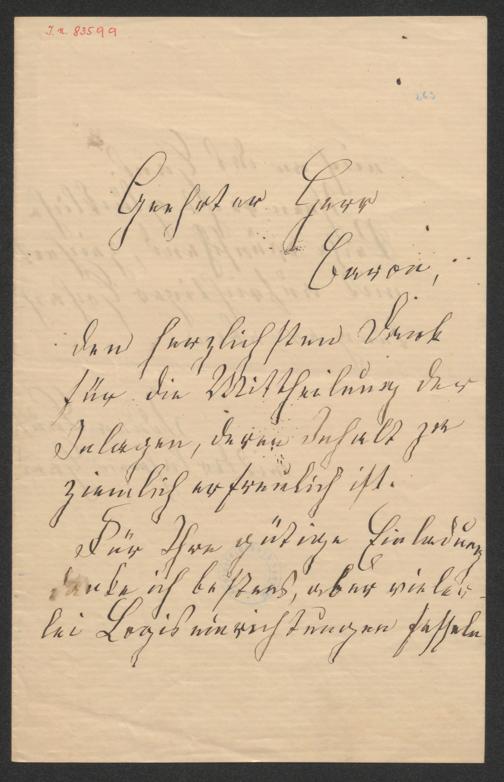 I.N. 83599
263
Geehrter Herr
Baron,
den herzlichsten Dank
für die Mittheilung der
Inlagen, deren Inhalt ja
ziemlich erfreulich ist.
Für Ihre gütige Einladung
danke ich bestens, aber vieler-
lei Logiseinrichtungen fesseln